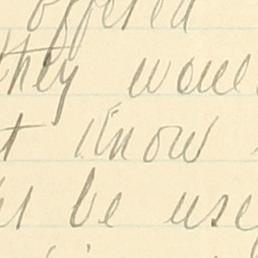 offered
they would
t know
be use